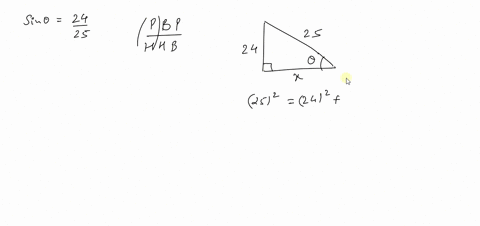 sinθ = 24/25
(P)BP
HHB
24
25
θ
x
(25)² = (24)² +